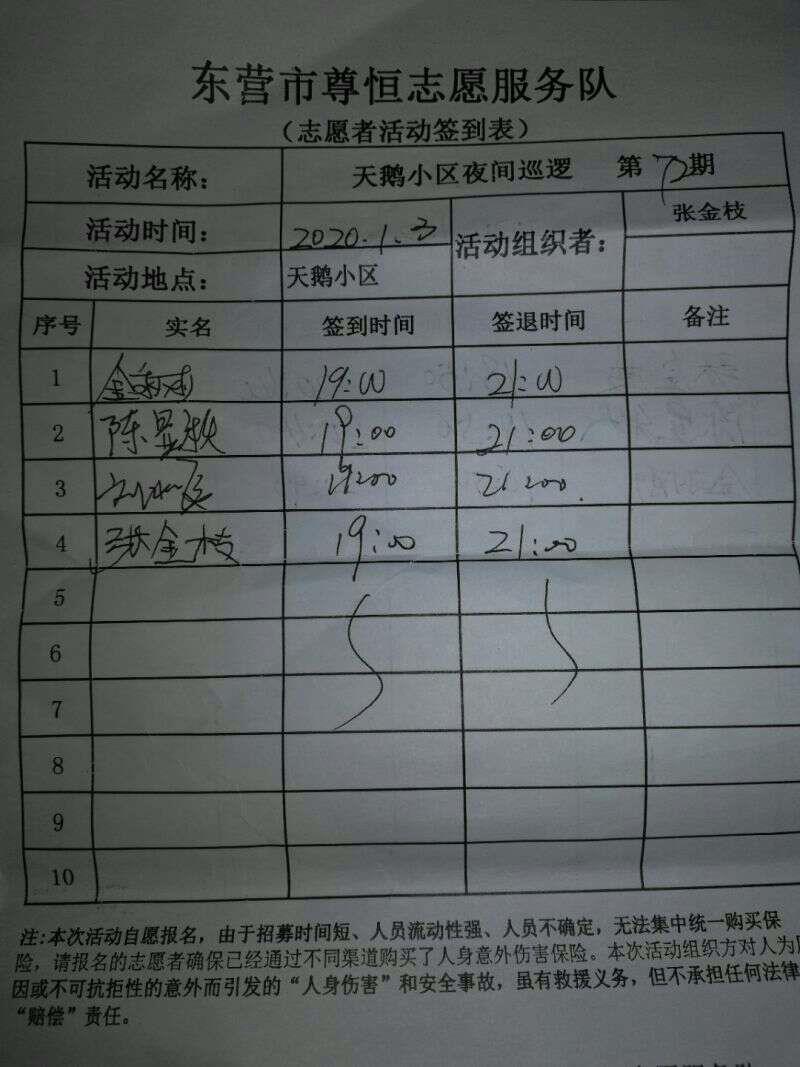 东营市尊恒志愿服务队
（志愿者活动签到表）
活动名称： 天鹅小区夜间巡逻 第72期
活动时间： 2020.1.3 活动组织者： 张金枝
活动地点： 天鹅小区
序号 实名 签到时间 签退时间 备注
1 19:00 21:00
2 陈显秋 19:00 21:00
3 19:00 21:00
4 张金枝 19:00 21:00
5
6
7
8
9
10
注:本次活动自愿报名，由于招募时间短、人员流动性强、人员不确定，无法集中统一购买保
险，请报名的志愿者确保已经通过不同渠道购买了人身意外伤害保险。本次活动组织方对人为
因或不可抗拒性的意外而引发的“人身伤害”和安全事故，虽有救援义务，但不承担任何法律
“赔偿”责任。